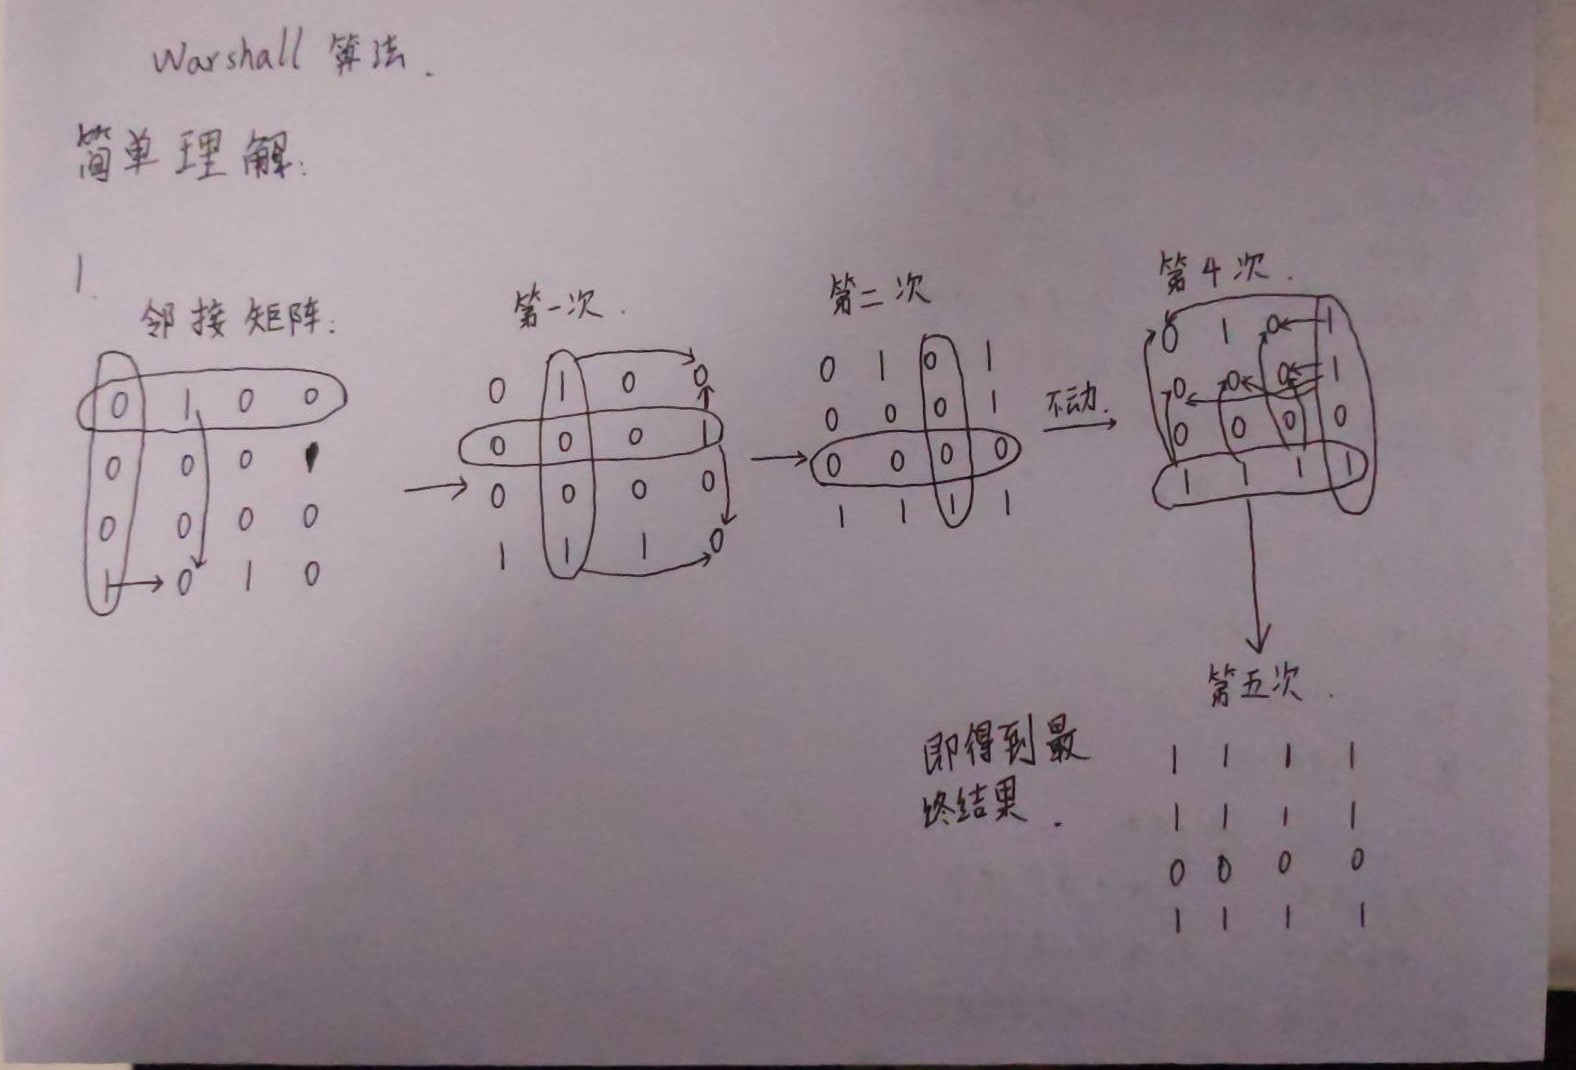 Warshall 算法.
简单理解:
1.
邻接矩阵:
0 1 0 0
0 0 0 1
0 0 0 0
1 0 1 0
第一次.
0 1 0 0
0 0 0 1
0 0 0 0
1 1 1 0
第二次
0 1 0 1
0 0 0 1
0 0 0 0
1 1 1 1
不动.
第4次.
0 1 0 1
0 0 0 1
0 0 0 0
1 1 1 1
第五次.
即得到最
终结果.
1 1 1 1
1 1 1 1
0 0 0 0
1 1 1 1